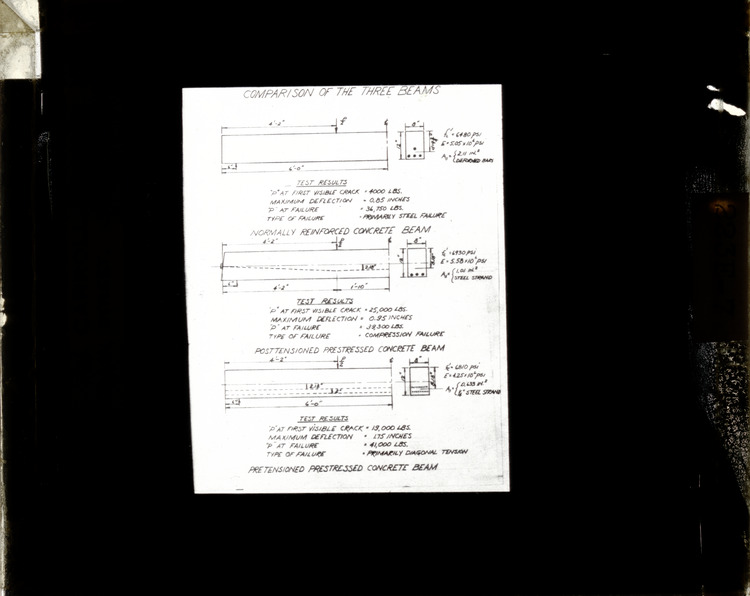 COMPARISON OF THE THREE BEAMS
4'-2"
8"
12"
f'c = 6480 PSI
E = 5.05 x 10⁶ PSI
As = 2.11 IN.²
DEFORMED BARS
6'-0"
TEST RESULTS
"P" AT FIRST VISIBLE CRACK = 4000 LBS.
MAXIMUM DEFLECTION = 0.85 INCHES
"P" AT FAILURE = 36,750 LBS.
TYPE OF FAILURE = PRIMARILY STEEL FAILURE
NORMALLY REINFORCED CONCRETE BEAM
4'-2"
8"
12"
E = 5.58 x 10⁶ PSI
STEEL STRAND
4'-2"
1'-10"
TEST RESULTS
"P" AT FIRST VISIBLE CRACK = 25,000 LBS.
MAXIMUM DEFLECTION = 0.95 INCHES
"P" AT FAILURE = 38,300 LBS.
TYPE OF FAILURE = COMPRESSION FAILURE
POSTTENSIONED PRESTRESSED CONCRETE BEAM
4'-2"
8"
12"
E = 4.25 x 10⁶ PSI
STEEL STRAND
6'-0"
TEST RESULTS
"P" AT FIRST VISIBLE CRACK = 19,000 LBS.
MAXIMUM DEFLECTION = 1.75 INCHES
"P" AT FAILURE = 41,000 LBS.
TYPE OF FAILURE = PRIMARILY DIAGONAL TENSION
PRETENSIONED PRESTRESSED CONCRETE BEAM